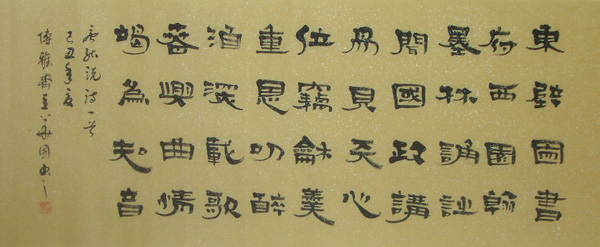 東壁圖書
府西園翰
墨林誦詩
聞國政講
易見天心
位竊龢羹
重恩叨醉
酒深載歌
春興曲情
竭為知音
唐張說詩一首
己丑年夏
齋主國書